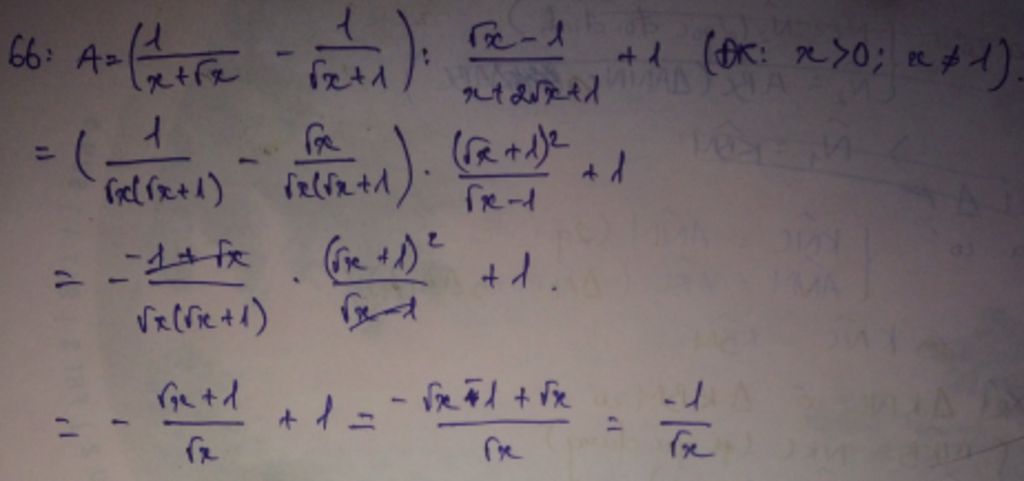 66: A = (1/(x+√x) - 1/(√x+1)) : (√x-1)/(x+2√x+1) + 1 (ĐK: x>0; x≠1).
= (1/(√x(√x+1)) - √x/(√x(√x+1))) . (√x+1)²/(√x-1) + 1
= - (-1+√x)/(√x(√x+1)) . (√x+1)²/(√x-1) + 1.
= - (√x+1)/√x + 1 = (-√x-1+√x)/√x = -1/√x